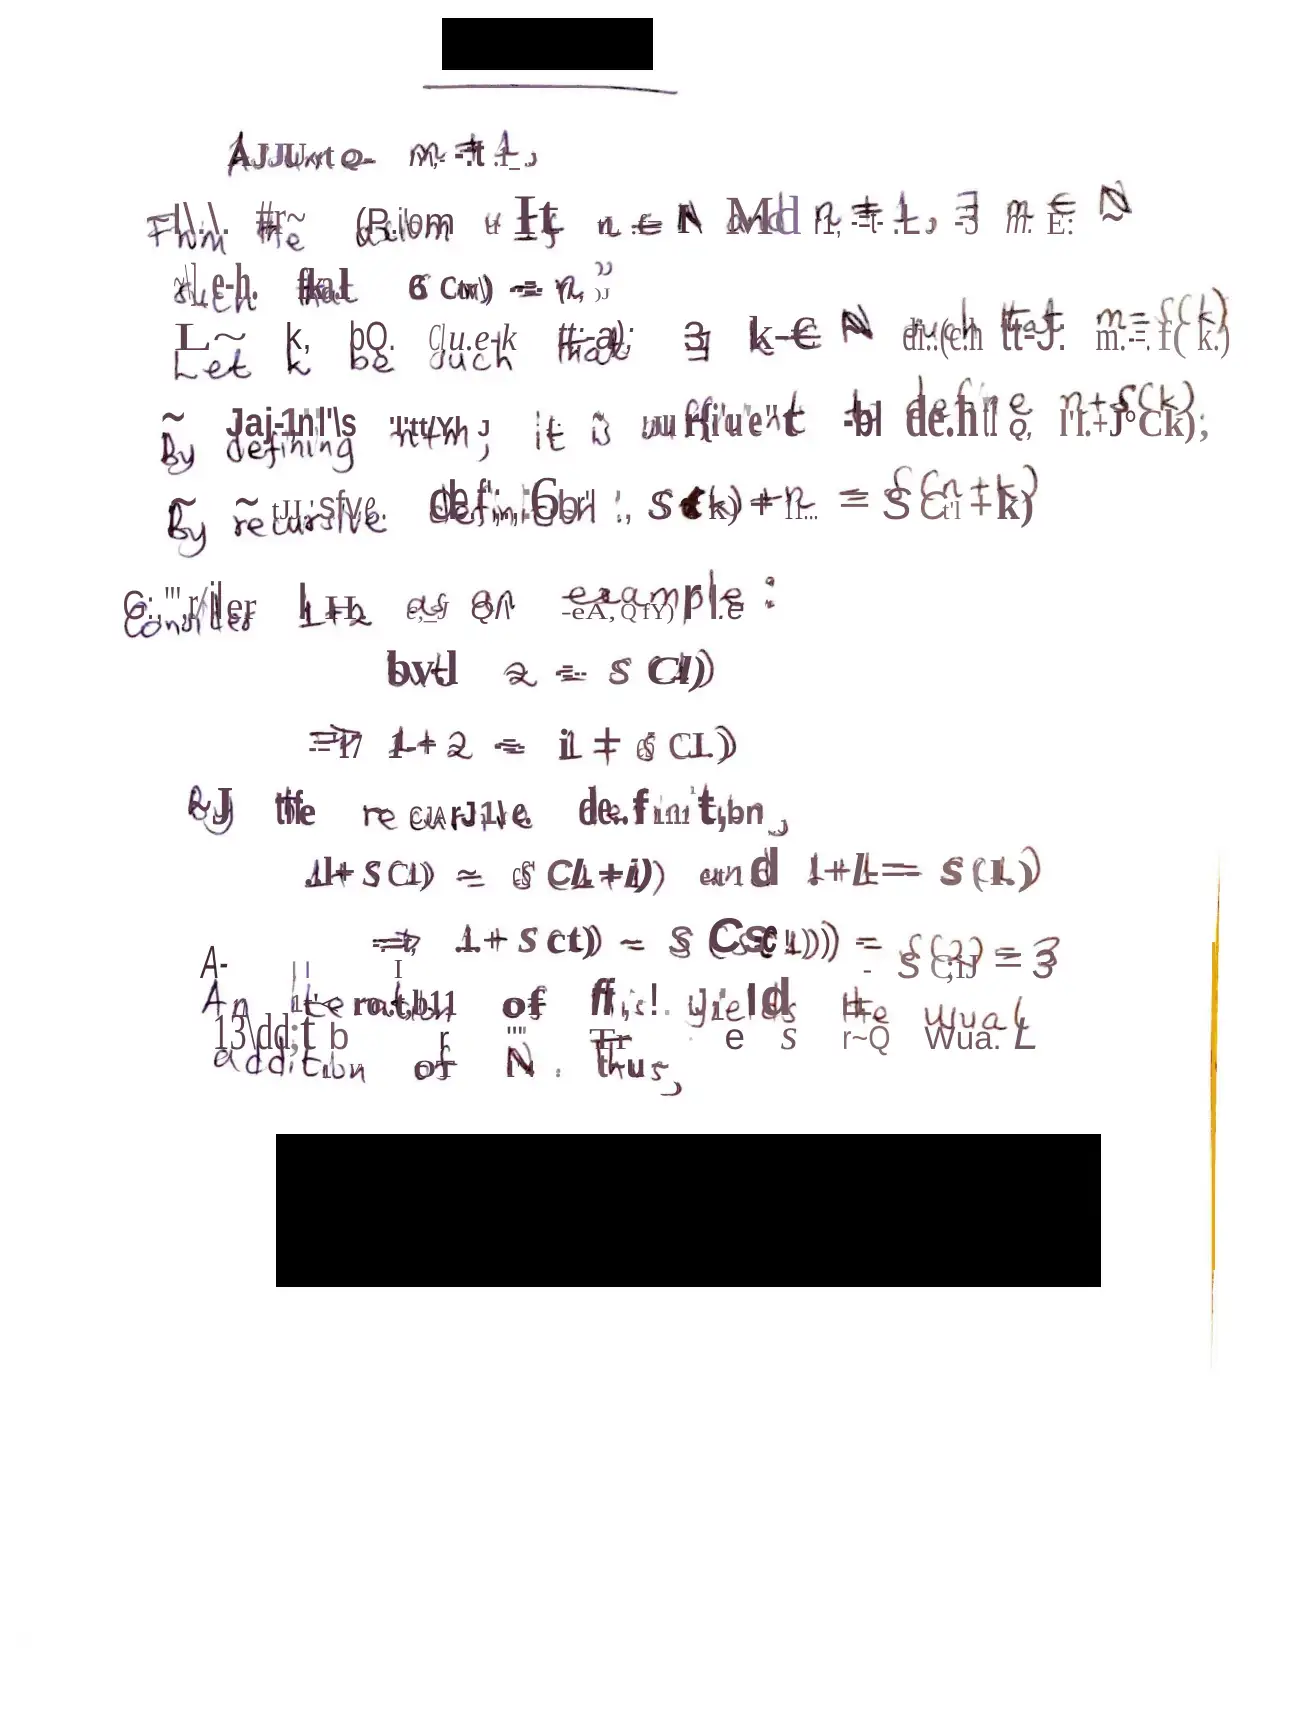 Assume m ≠ 1,
From the axiom " If n ∈ ℕ and n ≠ 1, ∃ m ∈ ℕ
such that S(m) = n,"
Let k be such that ∃ k ∈ ℕ such that m = S(k)
By defining n+m, it is sufficient to define n+S(k),
By recursive definition, S(k)+n = S(n+k)
Consider 1+2 as an example:
but 2 = S(1)
⇒ 1+2 = 1 + S(1)
By the recursive definition,
1+S(1) = S(1+1) and 1+1 = S(1)
⇒ 1+S(1) = S(S(1)) = S(2) = 3
An iteration of this yields the usual
addition of ℕ. Thus,